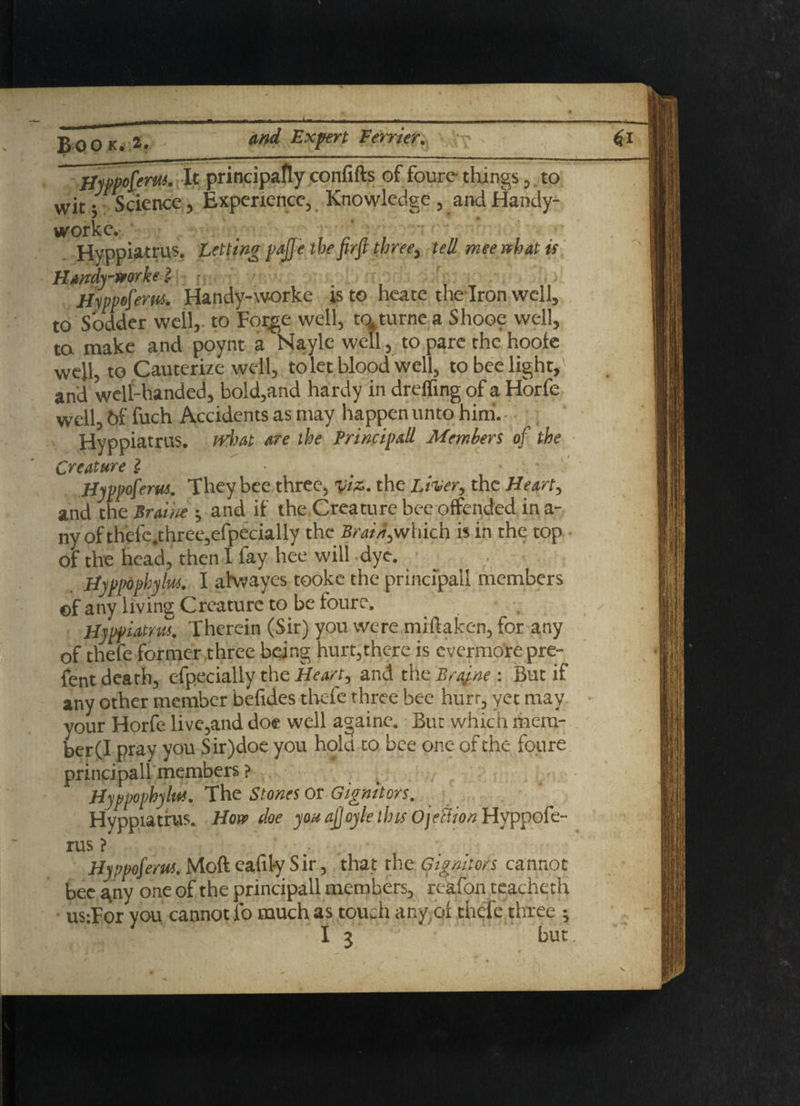 BOOK. 2. and Expert Ferrier. 61
Hyppoſerus. It principally conſiſts of foure things, to
wit; Science, Experience, Knowledge, and Handy-
worke.
Hyppiatrus. Letting paſſe the firſt three, tell mee what is
Handy-worke?
Hyppoſerus. Handy-worke is to heate the Iron well,
to Sodder well, to Forge well, to turne a Shooe well,
to make and poynt a Nayle well, to pare the hoofe
well, to Cauterize well, to let blood well, to bee light,
and well-handed, bold,and hardy in dreſſing of a Horſe
well, of ſuch Accidents as may happen unto him.
Hyppiatrus. What are the Principall Members of the
Creature?
Hyppoſerus. They bee three, viz. the Liver, the Heart,
and the Braine; and if the Creature bee offended in a-
ny of theſe three,eſpecially the Brain,which is in the top
of the head, then I ſay hee will dye.
Hyppophylus. I alwayes tooke the principall members
of any living Creature to be foure.
Hyppiatrus. Therein (Sir) you were miſtaken, for any
of theſe former three being hurt,there is evermore pre-
ſent death, eſpecially the Heart, and the Brayne: But if
any other member beſides theſe three bee hurt, yet may
your Horſe live,and doe well againe. But which mem-
ber(I pray you Sir)doe you hold to bee one of the foure
principall members?
Hyppophylus. The Stones or Gignitors.
Hyppiatrus. How doe you aſſoyle this Ojection Hyppoſe-
rus?
Hyppoſerus. Moſt eaſily Sir, that the Gignitors cannot
bee any one of the principall members, reaſon teacheth
us:For you cannot ſo much as touch any of theſe three;
I 3 but